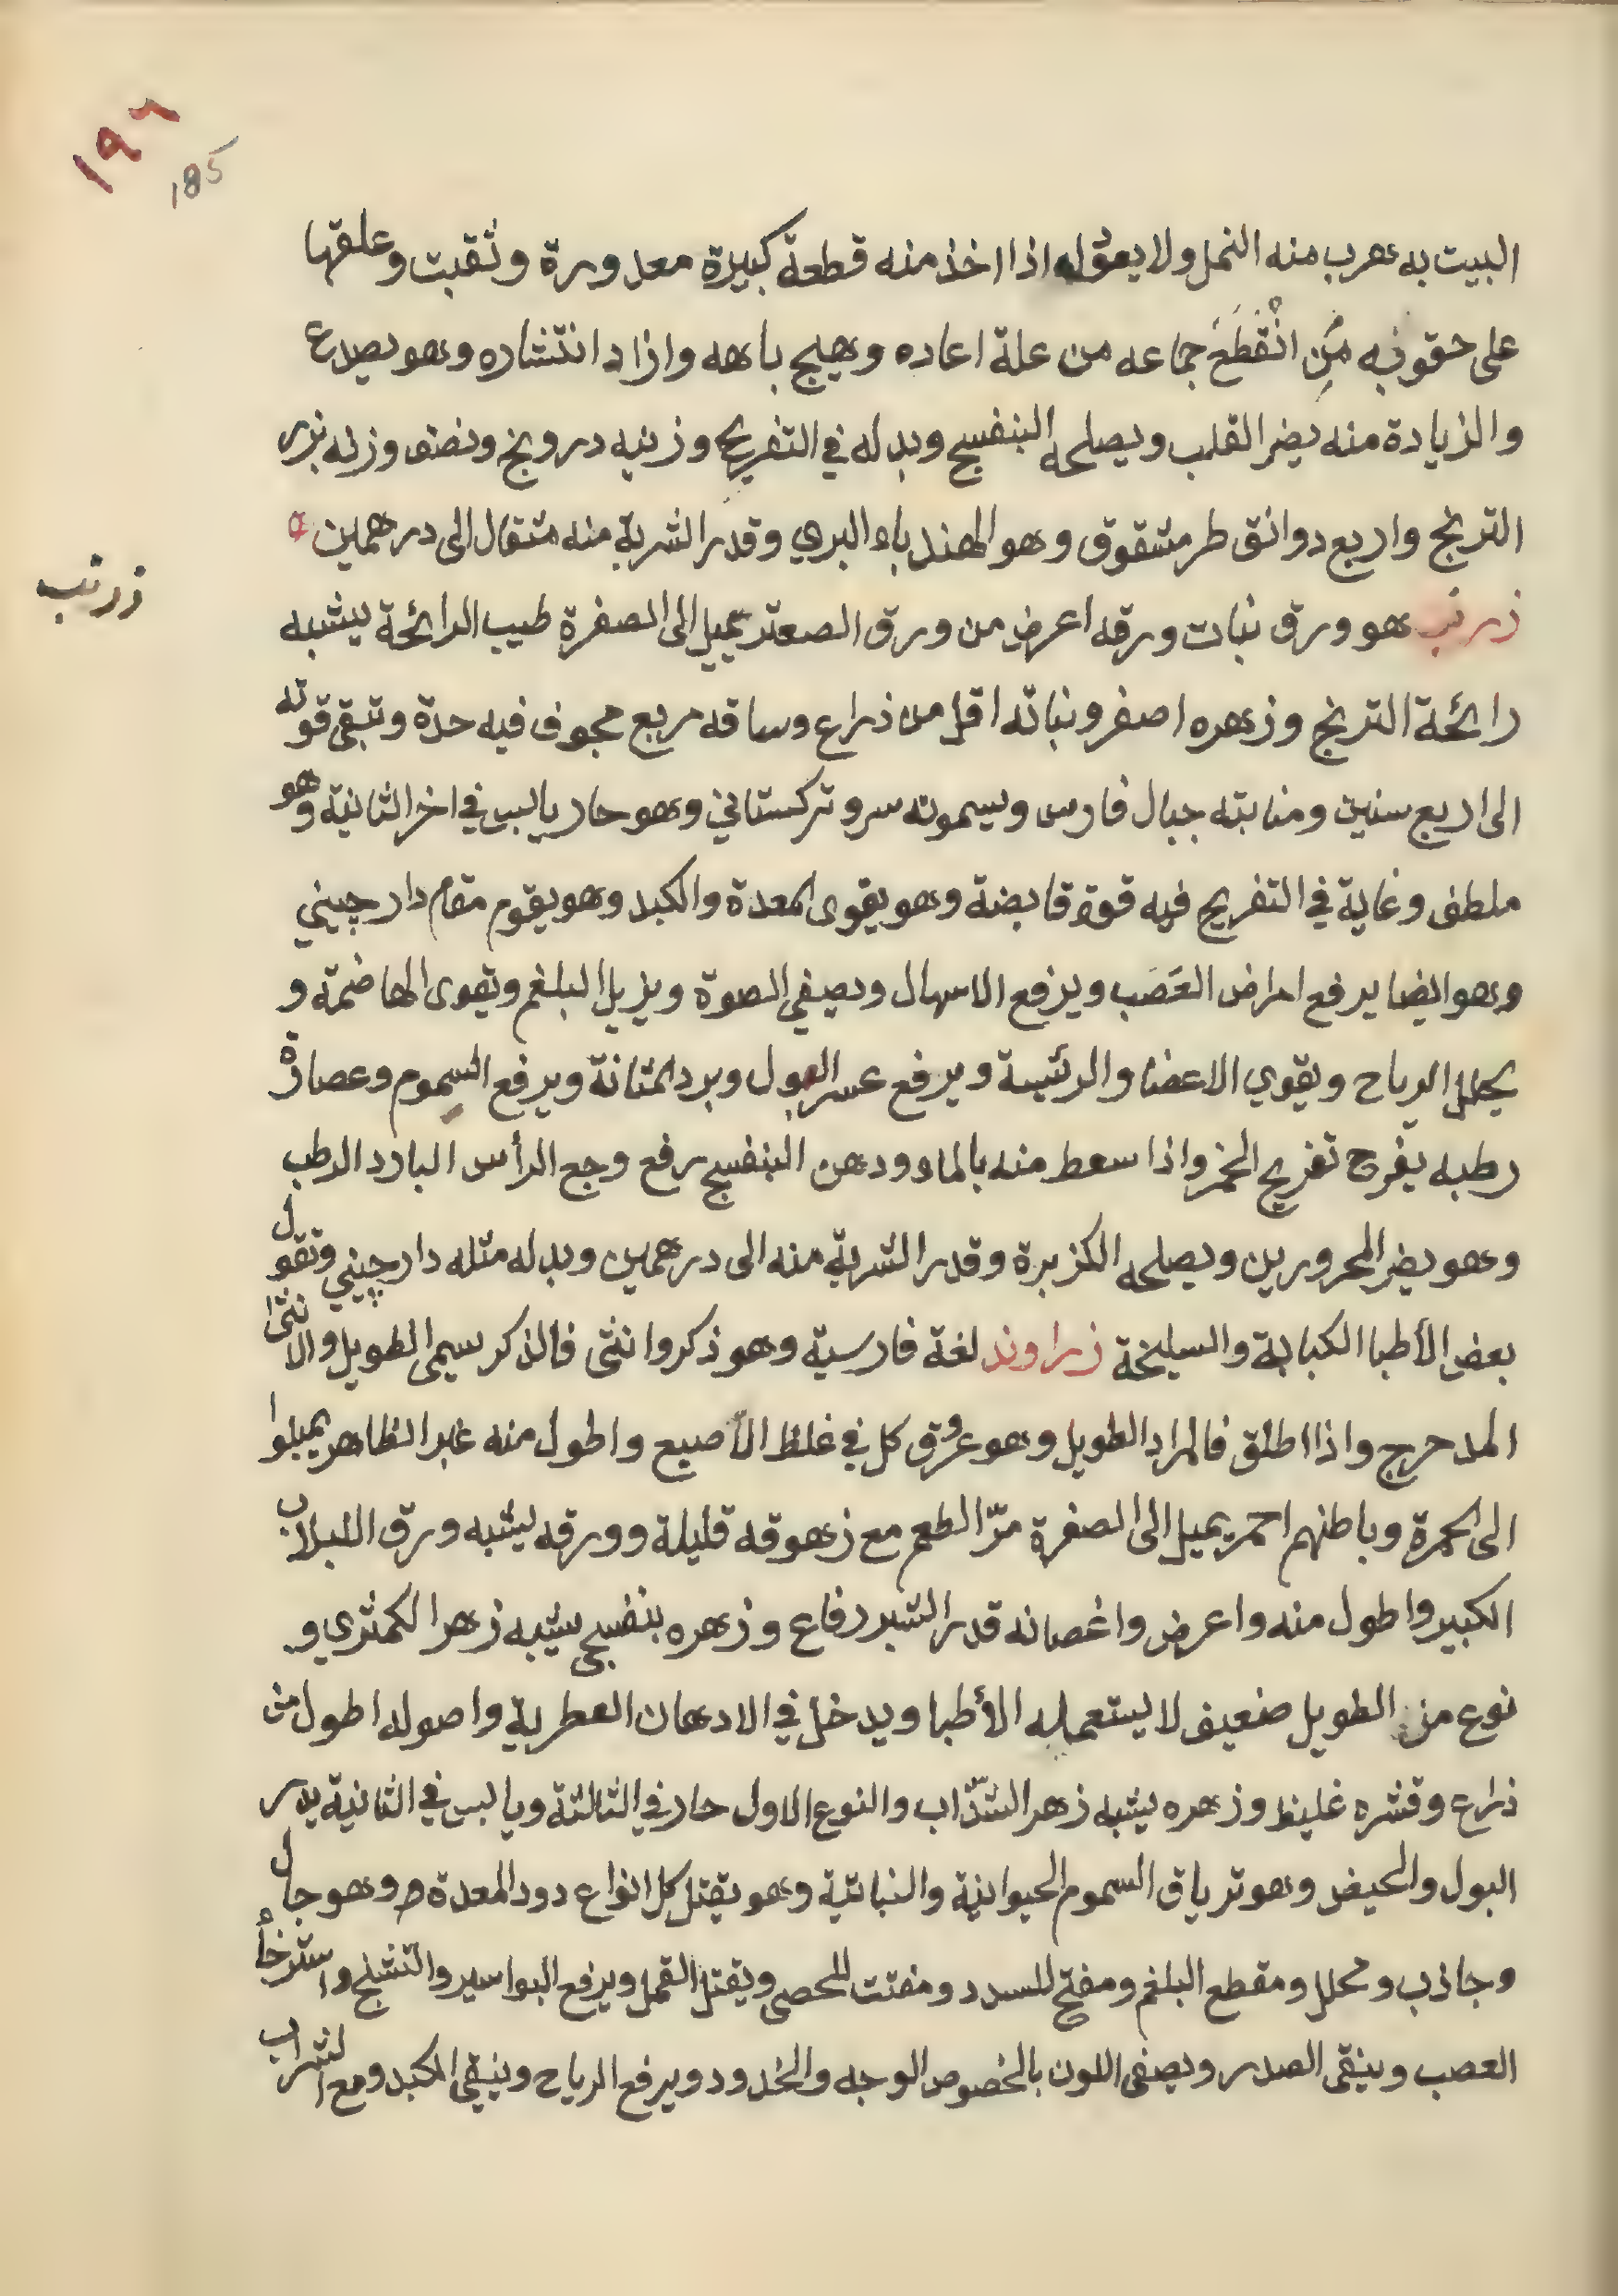 ١٩٦
185
البيت به يهرب منه النمل ولا يعوله اذا اخذ منه قطعة كبيرة معدورة وثقبت وعلقها
على حقوفيه مَن انْقَطَعَ جماعه من علة اعاده ويهيج باهه وازاد انتشاره وهو يصدع
والزيادة منه يضر القلب ويصلحه البنفسج وبدله في التفريح وزنيه درونج ونصف وزنه بزر
الترنج واربع دوانق طرمشقوق وهو الهندباء البري وقدر الشربة منه مثقال الى درهمين
زرنب هو ورق نبات ورقه اعرض من ورق الصعتر يميل الى الصفرة طيب الرائحة يشبه
زرنب
رائحة الترنج وزهره اصفر ونباته اقل من ذراع وساقه مربع مجوف فيه حدة وتبقى قوته
الى اربع سنين ومنابته جبال فارس ويسمونه سرو تركستاني وهو حار يابس في اخر الثانية وهو
ملطف وغاية في التفريح فيه قوة قابضة وهو يقوى المعدة والكبد وهو يقوم مقام دارچيني
وهو ايضا يرفع امراض العَصَب ويرفع الاسهال ويصفي الصوة ويزيل البلغم ويقوى الهاضمة و
يحلل الرياح ويقوي الاعضا والرئيسة ويرفع عسر البول وبرد المثانة ويرفع السموم وعصارة
رطبه يفرح تفريح الخمر واذا سعط منه بالماء ودهن البنفسج رفع وجع الرأس البارد الرطب
وهو يضر المحرورين ويصلحه الكزبرة وقدر الشربة منه الى درهمين وبدله مثله دارچيني وتقول
بعض الأطبا الكبابة والسليخة زراوند لغة فارسية وهو ذكر وانثى فالذكر سمى الطويل والانثى
المدحرج واذا اطلق فالمراد الطويل وهو عروق كل في غلظ الأصبع واطول منه غبر الظاهر يميلوا
الى الحمرة وباطنهم احمر يميل الى الصفرة مرّ الطعم مع زهوقه قليلة وورقه يشبه ورق اللبلاب
الكبير واطول منه واعرض واغصانه قدر الشبر رفاع وزهره بنفسجي يشبه زهر الكمثري و
نوع من الطويل ضعيف لا يستعمله الأطبا ويدخل في الادهان العطرية واصوله اطول من
ذراع وقشره غليظ وزهره يشبه زهر السّذّاب والنوع الاول حار في الثالثة ويابس في الثانية يدر
البول والحيض وهو ترياق السموم الحيوانية والنباتية وهو يقتل كل انواع دود المعدة وهو جال
وجاذب ومحلل ومقطع البلغم ومفتح للسدد ومفتت للحصى ويقتل القمل ويرفع البواسير والتشنج واسترخاء
العصب وينقى الصدر ويصفى اللون بالخصوص الوجه والخدود ويرفع الرياح وينقي الكبد ومع الشراب